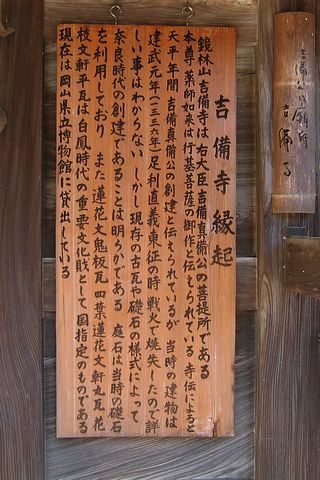 吉備公の廟所
吉備寺
吉備寺縁起
鏡林山 吉備寺は 右大臣 吉備真備公の菩提所である
本尊 薬師如来は 行基菩薩の御作と伝えられている 寺伝によると
天平年間 吉備真備公の創建と伝えられているが 当時の建物は
建武元年(一三三六年)足利直義東征の時 戦火で焼失したので詳
しい事はわからない しかし現存の古瓦や礎石の様式によって
奈良時代の創建であることは明らかである 庭石は当時の礎石
を利用しており また 蓮花文鬼板瓦 四葉蓮花文軒丸瓦 花
枝文軒平瓦は白鳳時代の重要文化財として国指定のものである
現在は岡山県立博物館に貸出している